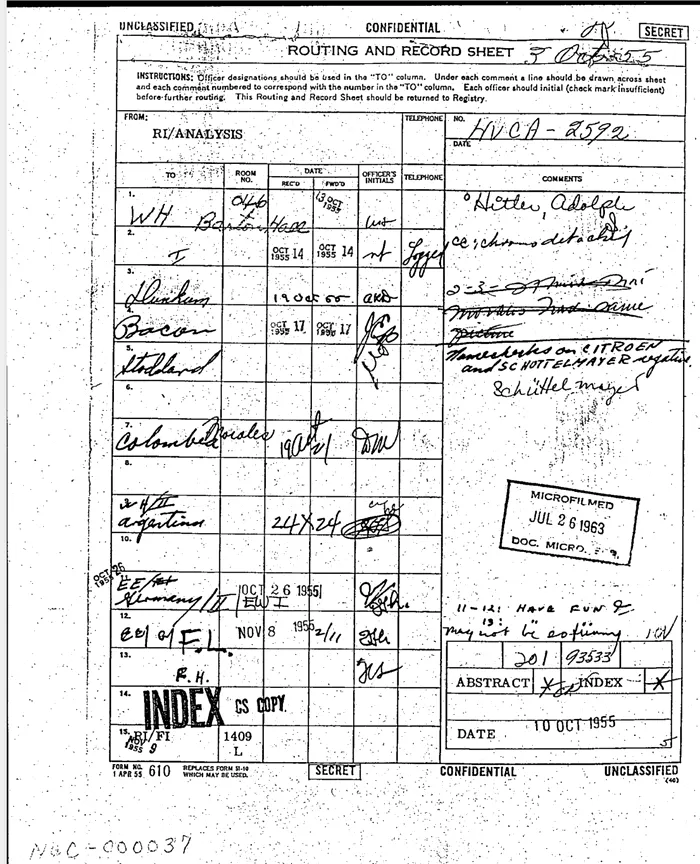 UNCLASSIFIED CONFIDENTIAL SECRET
ROUTING AND RECORD SHEET 3 Oct 55
INSTRUCTIONS: Officer designations should be used in the "TO" column. Under each comment a line should be drawn across sheet
and each comment numbered to correspond with the number in the "TO" column. Each officer should initial (check mark insufficient)
before further routing. This Routing and Record Sheet should be returned to Registry.
FROM:
RI/ANALYSIS
TELEPHONE
NO.
HVCA-2592
DATE
TO
ROOM NO.
DATE
REC'D FWD'D
OFFICER'S INITIALS
TELEPHONE
COMMENTS
1.
WH Barton Hall
046
13 OCT 1955
Hitler, Adolph
2.
I
OCT 14 1955
OCT 14 1955
nt
Logged
3.
Dunham
19 Oct 55
4.
Bacon
OCT 17 1955
OCT 17
picture
5.
Stoddard
Namechecks on CITROEN
and SCHOTTELMAYER negative.
Schüttelmayer
6.
7.
Colombia
DM
8.
WH/III
Argentina
24 X 24
MICROFILMED
JUL 26 1963
DOC. MICRO.
10.
OCT 26 1955
11.
EE/
Germany/II
OCT 26 1955
11-12: HAVE FUN
13:
may not be
12.
EE/
NOV 8 1955
2/11
201 93533
13.
R.H.
ABSTRACT X INDEX X
14.
INDEX CS COPY
DATE 10 OCT 1955
15.
RI/FI
NOV 9 1955
1409
L
5
FORM NO.
1 APR 55 610 REPLACES FORM 51-10
WHICH MAY BE USED.
SECRET CONFIDENTIAL UNCLASSIFIED
(40)
NGC-000037